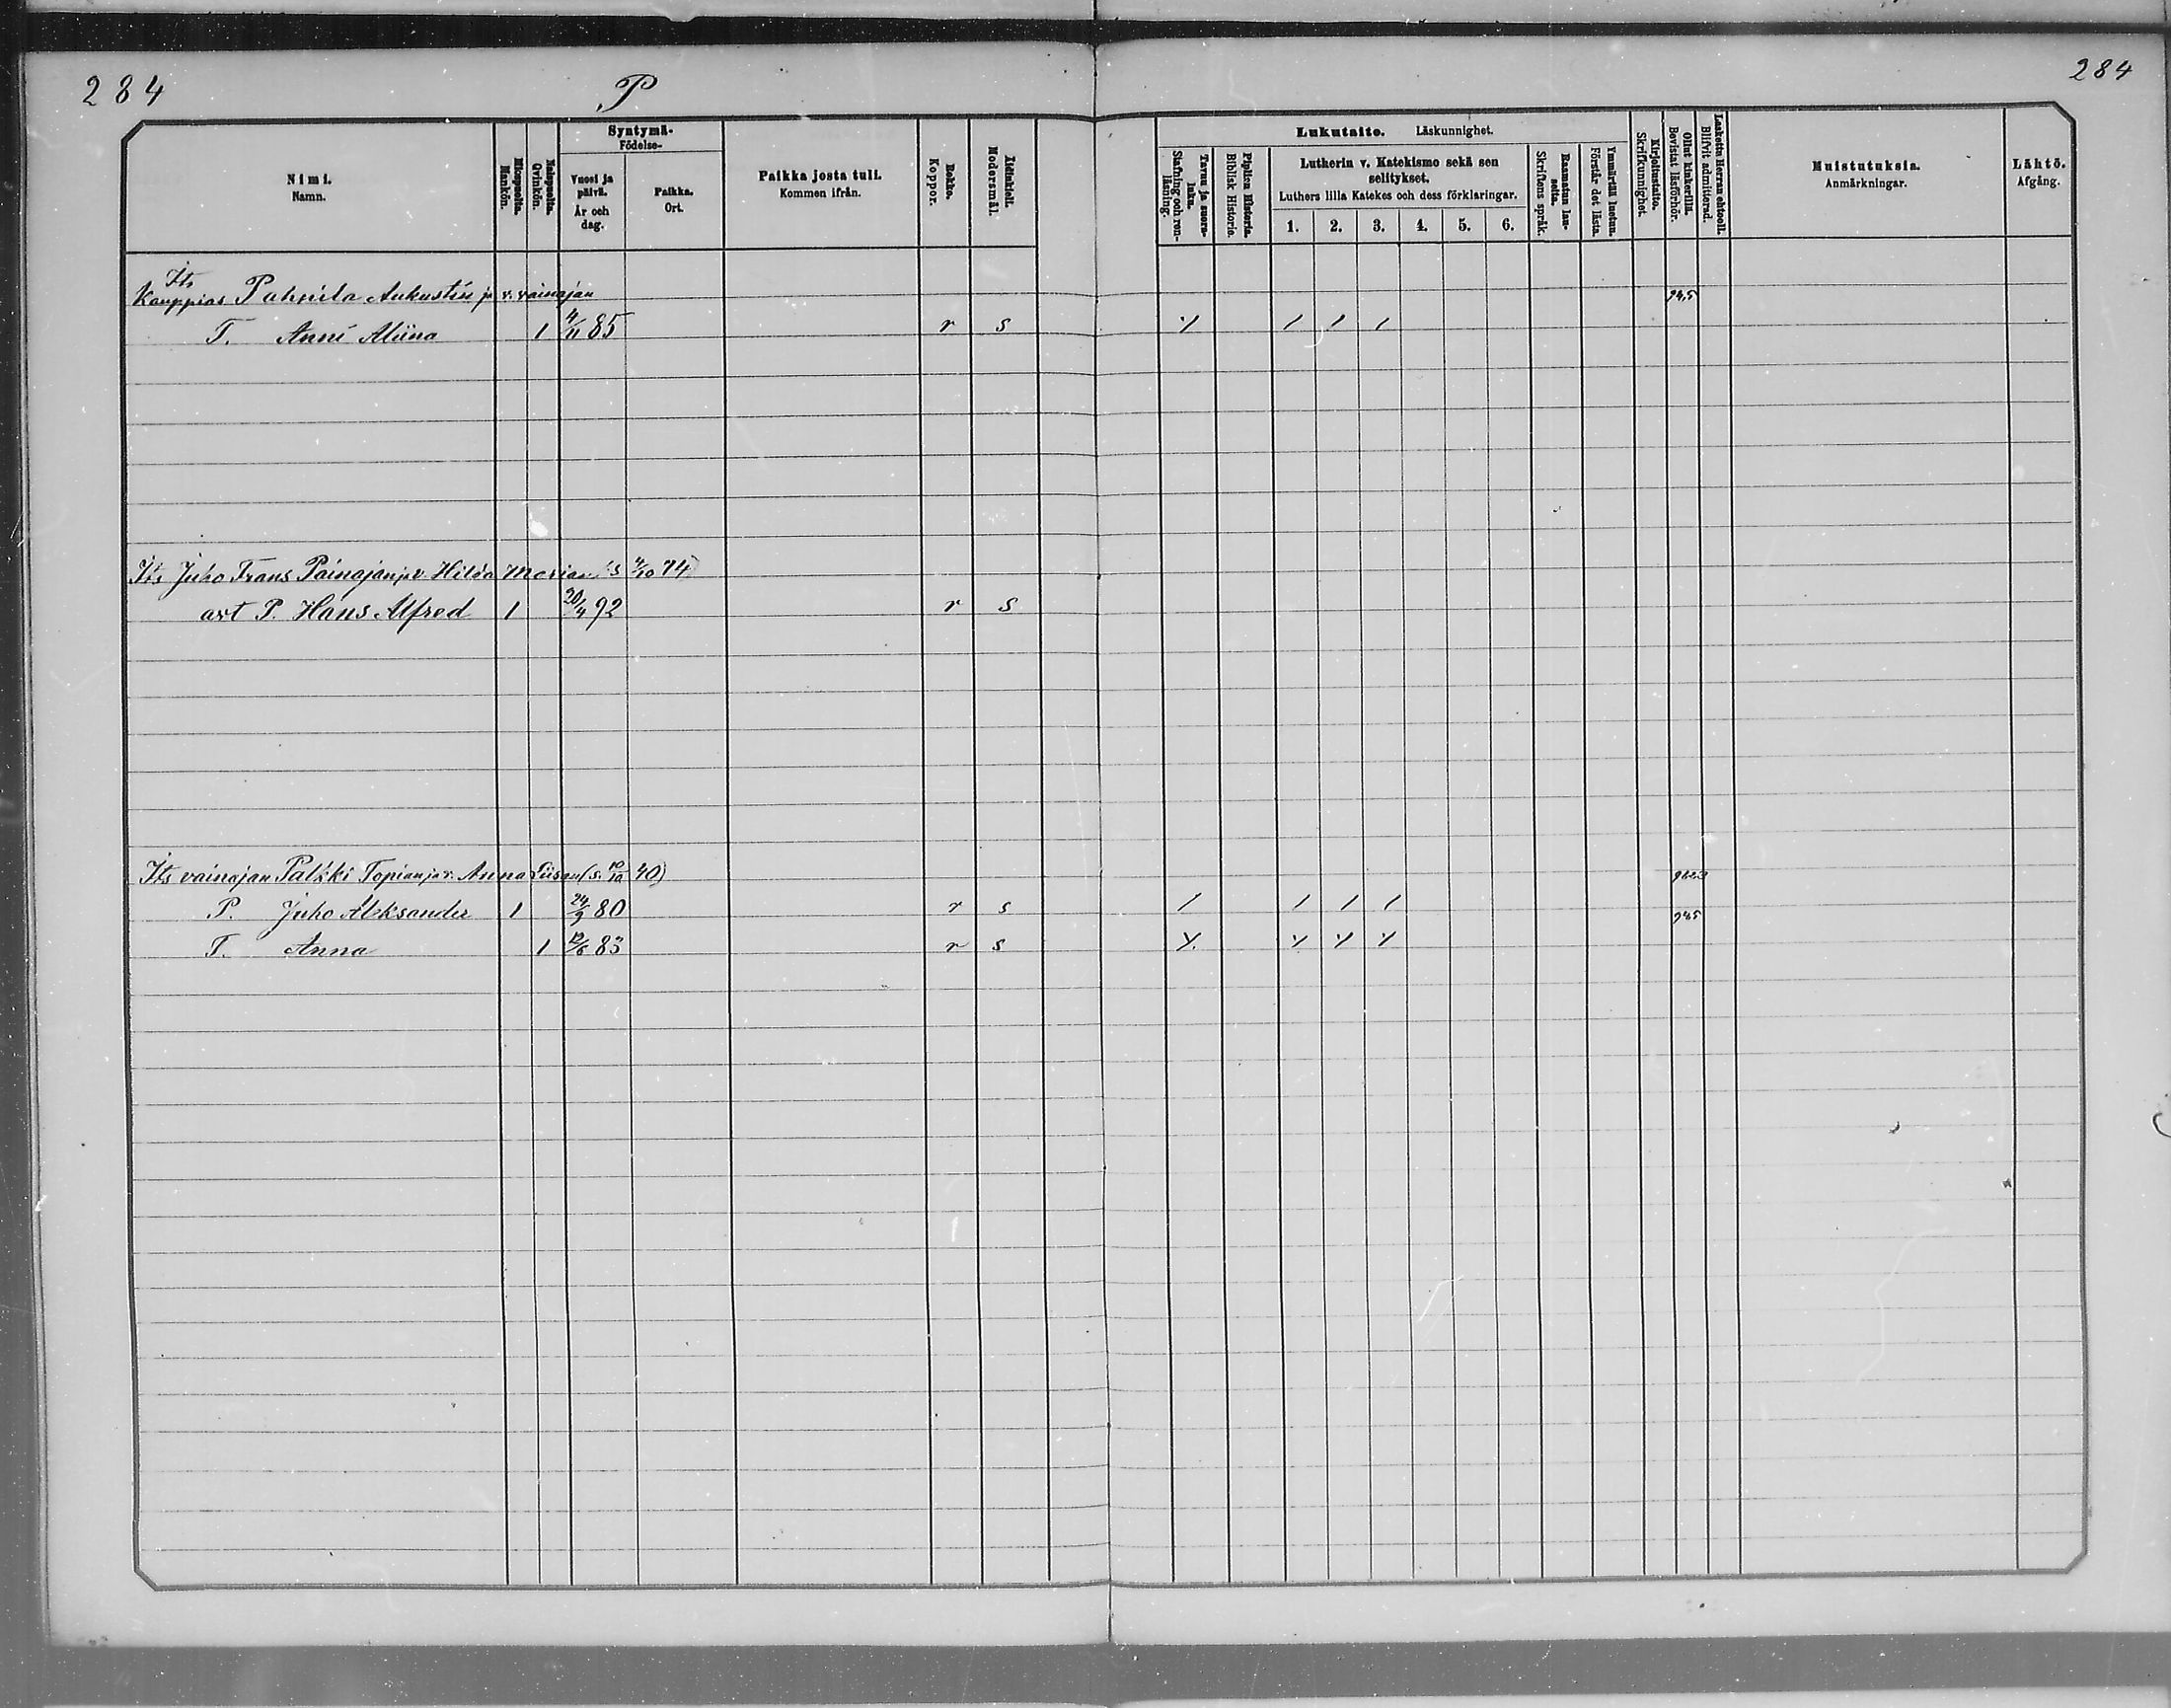 284
P
284
Nimi.
Namn.
Miespuolta.
Mankön.
Naispuolta.
Qvinkön.
Syntymä-
Födelse-
Vuosi ja
päivä.
År och
dag.
Paikka.
Ort.
Paikka josta tuli.
Kommen ifrån.
Rokko.
Koppor.
Äidinkieli.
Modersmål.
Lukutaito. Läskunnighet.
Tavuu ja suora-
luku.
Stafning och ren-
läsning.
Piplian Historia.
Biblisk Historie.
Lutherin v. Katekismo sekä sen
selitykset.
Luthers lilla Katekes och dess förklaringar.
1. 2. 3. 4. 5. 6.
Raamatun lau-
seita.
Skriftens språk.
Ymmärtää luetun.
Förstår det lästa.
Kirjoitustaito.
Skrifkunnighet.
Ollut kinkerillä.
Bevistat läsförhör.
Laskettu Herran ehtooll.
Blifvit admitterad.
Muistutuksia.
Anmärkningar.
Lähtö.
Afgång.
Its
Kauppias Pahnila Aukustin ja v. vainajan
94,5
T. Anni Aliina 1 4/11 85 r s
Its Juho Frans Painajan ja v Hilda Marian (s 4/10 74)
avt P. Hans Alfred 1 20/4 92 r s
Its vainajan Palkki Topian ja v. Anna Liisan (s. 10/10 40)
P. Juho Aleksander 1 24/9 80 r s / / / /
945
T. Anna 1 12/6 83 r s